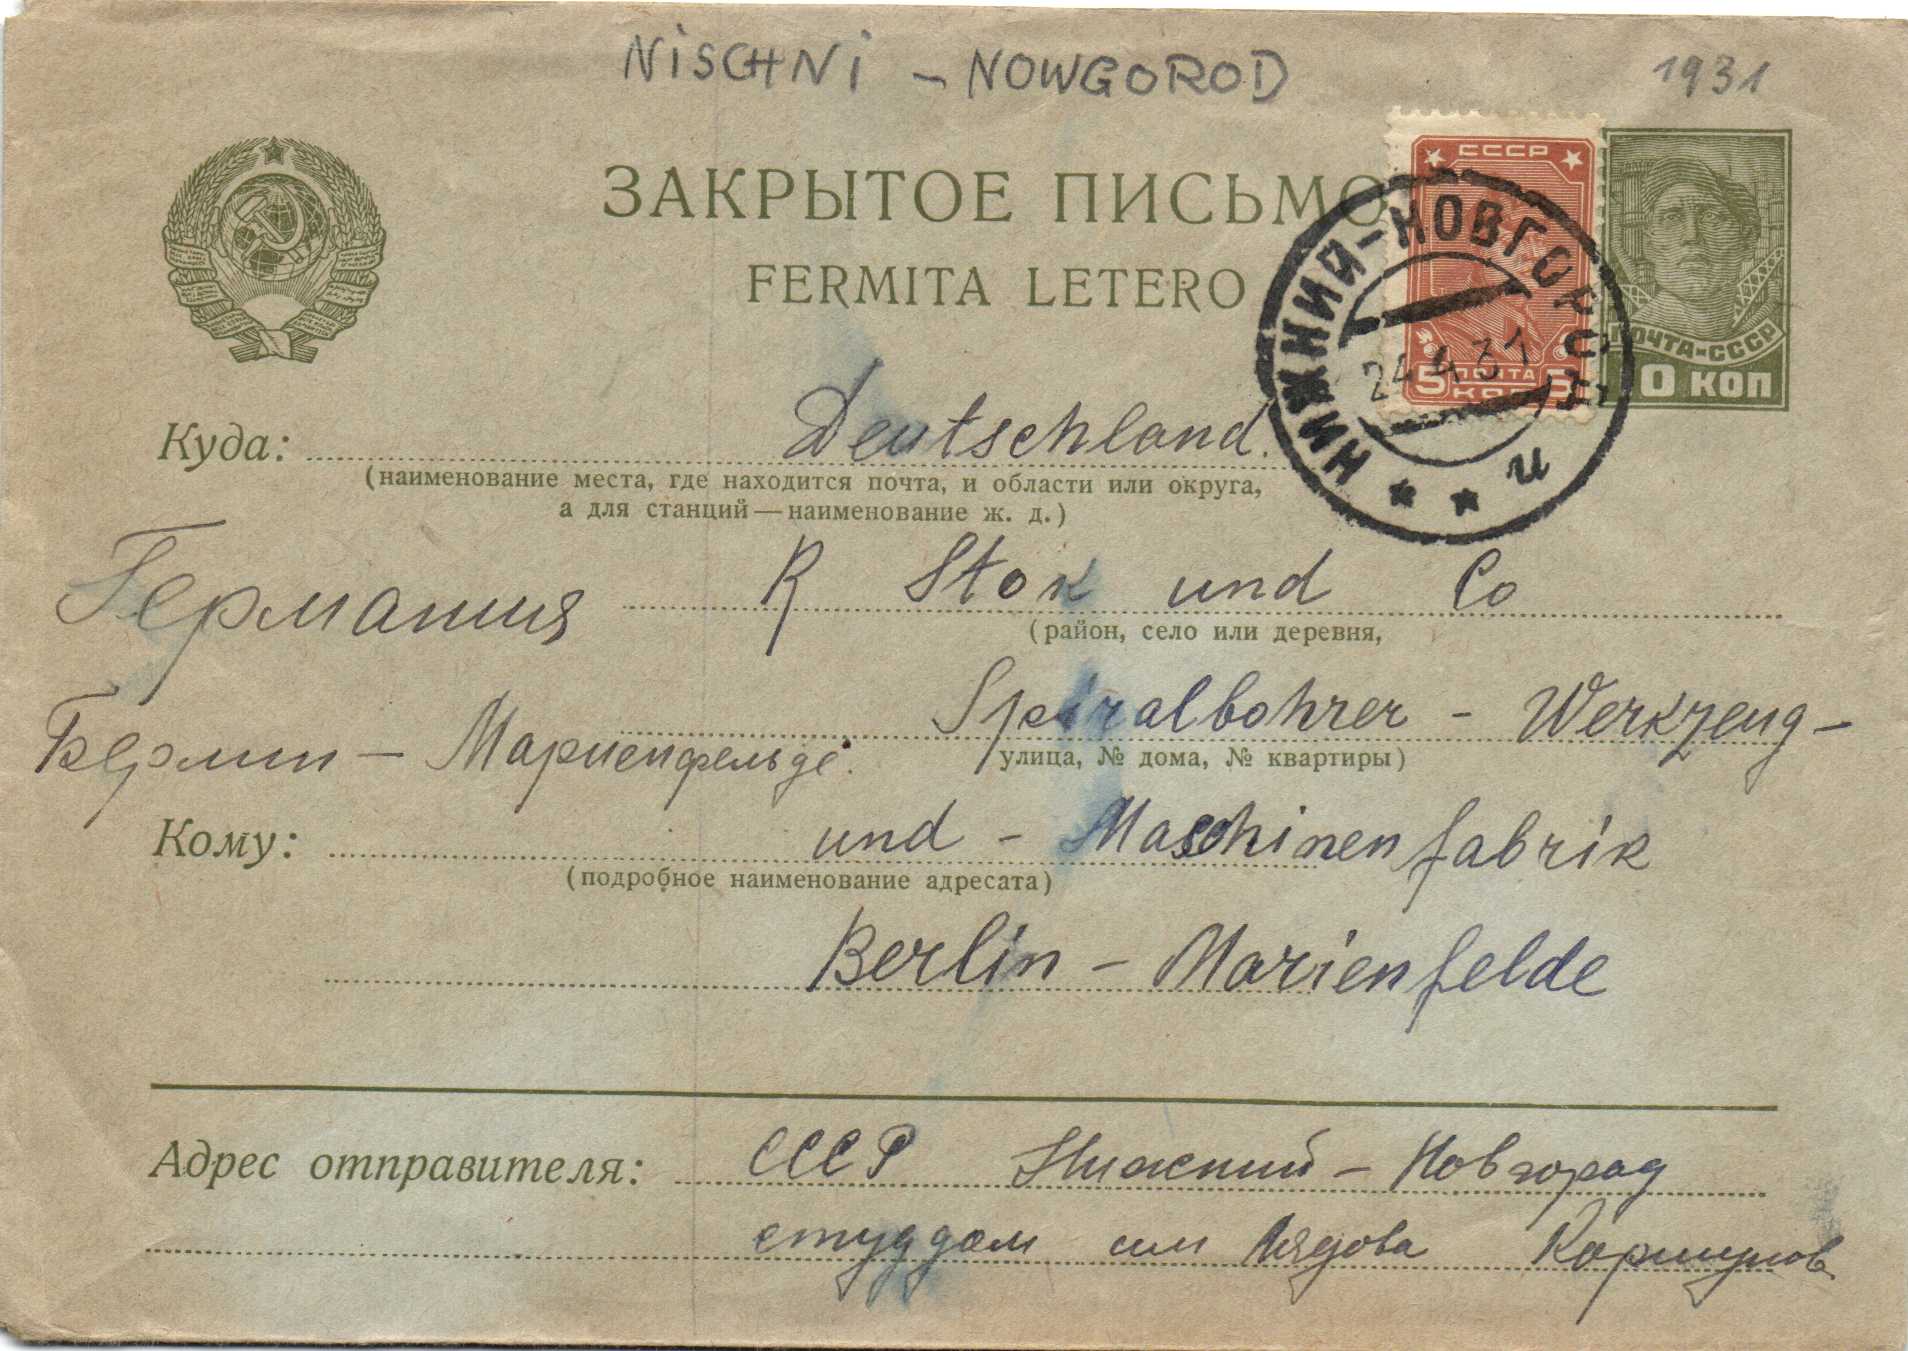 NiSCHNi - NOWGOROD 1931
ЗАКРЫТОЕ ПИСЬМО
FERMITA LETERO
СССР
5 ПОЧТА 5
КОП
ПОЧТА-СССР
10 КОП
НИЖНИЙ-НОВГОРОД
24.4.31
и
Куда: Deutschland.
(наименование места, где находится почта, и области или округа,
а для станций—наименование ж. д.)
Германия R Stok und Co
(район, село или деревня,
Берлин – Мариенфельде. Spiralbohrer - Werkzeug -
улица, № дома, № квартиры)
Кому: und - Maschinenfabrik
(подробное наименование адресата)
Berlin - Marienfelde
Адрес отправителя: СССР Нижний - Новгород
студдом им Лядова Коршунов